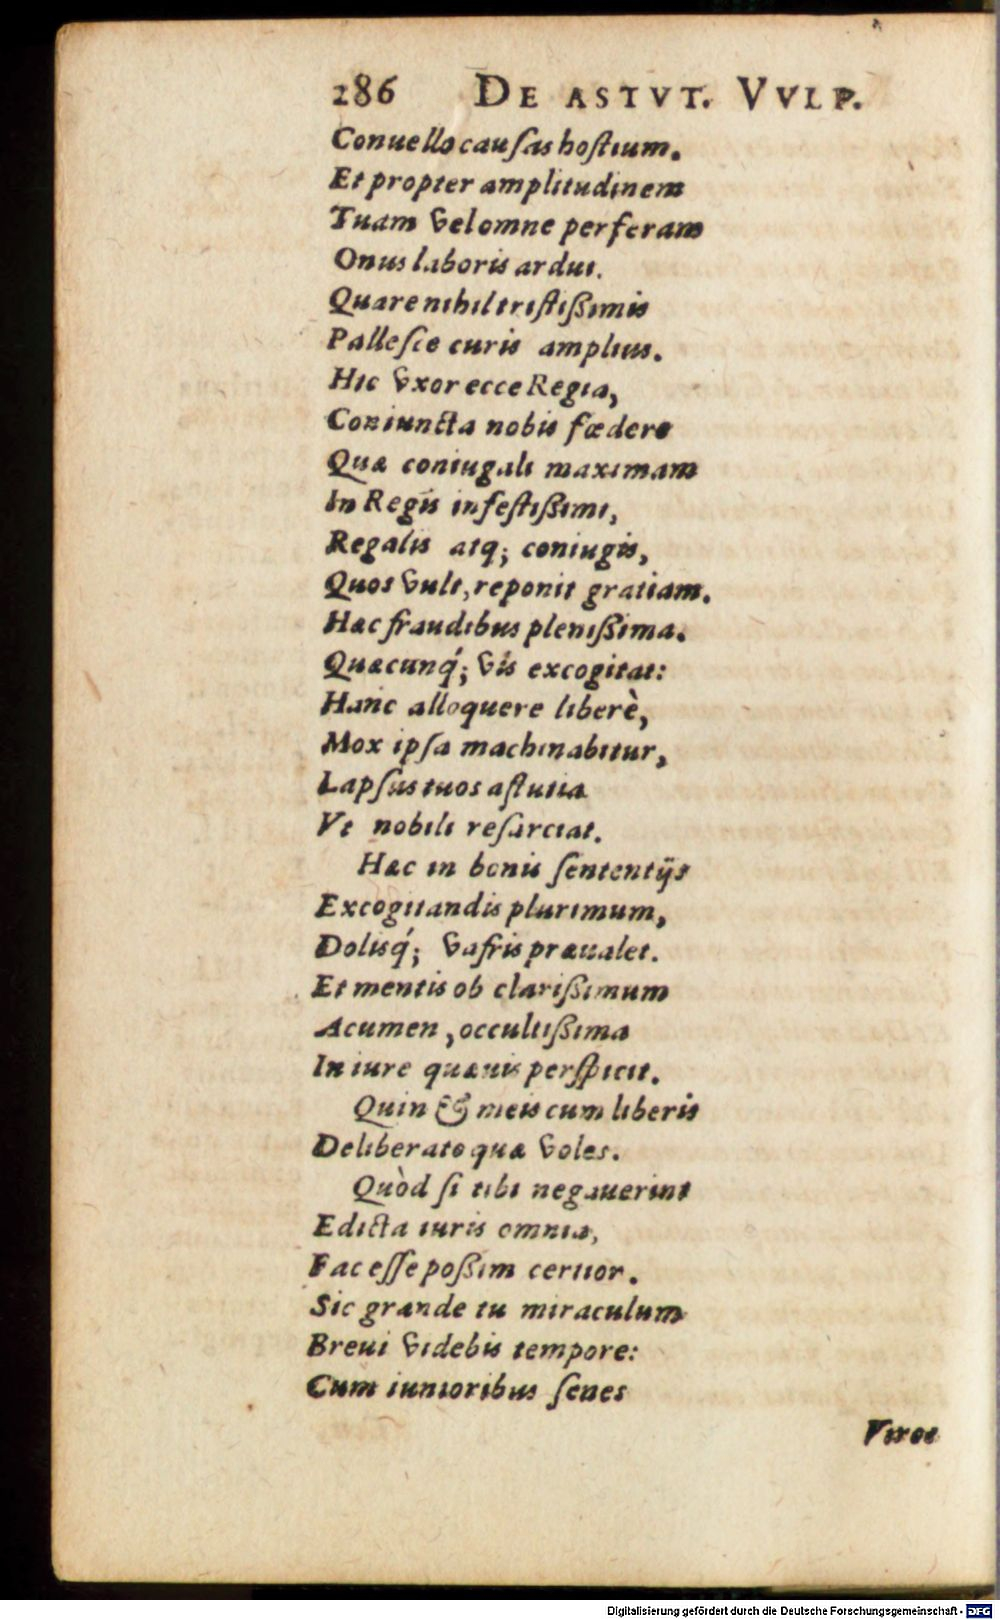 286 DE ASTVT. VVLP.
Conuello cauſas hoſtium.
Et propter amplitudinem
Tuam vel omne perferam
Onus laboris ardui.
Quare nihil triſtißimis
Palleſce curis amplius.
Hic vxor ecce Regia,
Coniuncta nobis fœdere
Quæ coniugali maximam
In Regis infeſtißimi,
Regalis atq; coniugis,
Quos vult, reponit gratiam.
Hæc fraudibus plenißima.
Quæcunq́; vis excogitat:
Hanc alloquere liberè,
Mox ipſa machinabitur,
Lapſus tuos aſtutia
Vt nobili reſarciat.
Hæc in bonis ſententijs
Excogitandis plurimum,
Dolisq́; vafris præualet.
Et mentis ob clarißimum
Acumen, occultißima
In iure quæuis perſpicit.
Quin & meis cum liberis
Deliberato quæ voles.
Quòd ſi tibi negauerint
Edicta iuris omnia,
Fac eſſe poßim certior.
Sic grande tu miraculum
Breui videbis tempore:
Cum iunioribus ſenes
Viros
Digitalisierung gefördert durch die Deutsche Forschungsgemeinschaft - DFG